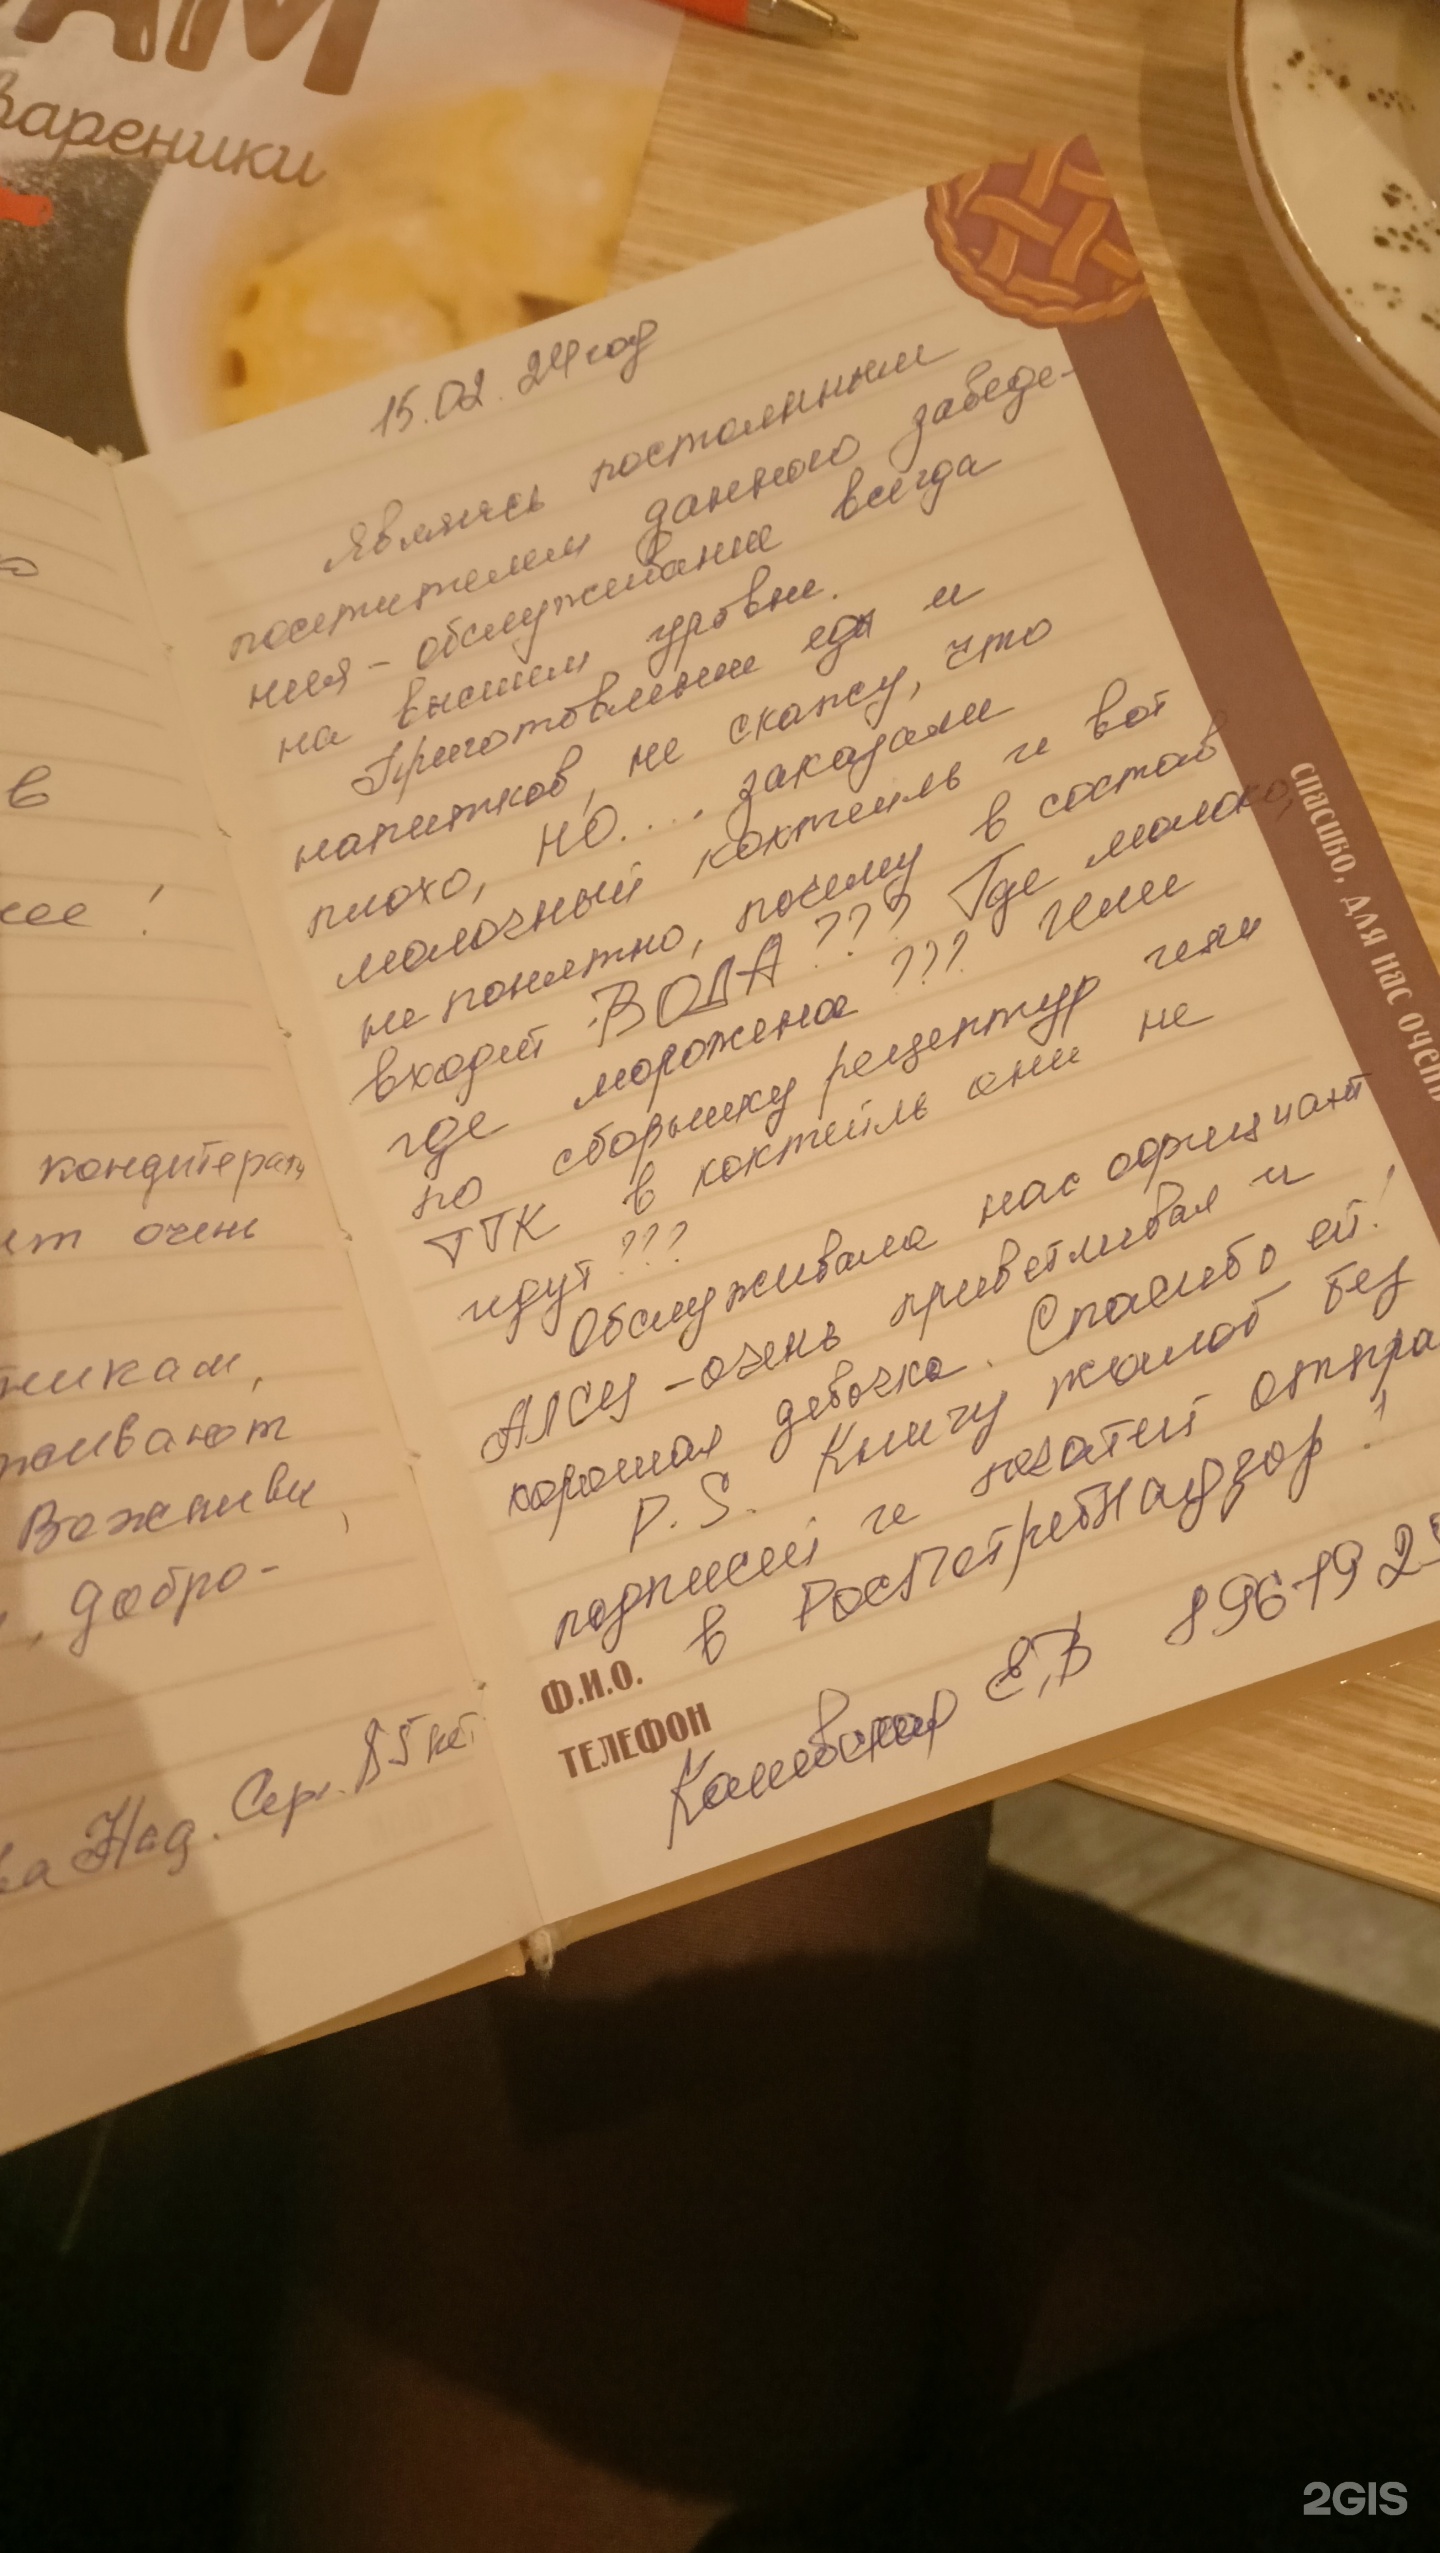 АМ
вареники
15.02.24 год
Являясь постоянным
посетителем данного заведе-
ния - обслуживание всегда
на высшем уровне.
Приготовление еды и
напитков, не скажу, что
плохо, НО.... заказали
молочный коктейль и вот
не понятно, почему в состав
входит ВОДА??? Где молоко,
где мороженое??? Или
по сборнику рецептур или
ТТК в коктейль они не
идут???
Обслуживала нас официант
АЛСУ - очень приветливая и
хорошая девочка. Спасибо ей!
P.S. Книгу жалоб без
подписей и печатей отпра
в РосПотребНадзор!
Ф.И.О.
ТЕЛЕФОН
Каневская Е,В 896192
спасибо, для нас очень
в
!
кондитерам
ет очень
никам,
живают
Вежливы,
, добро-
ва Над. Серг. 85 лет
2GIS